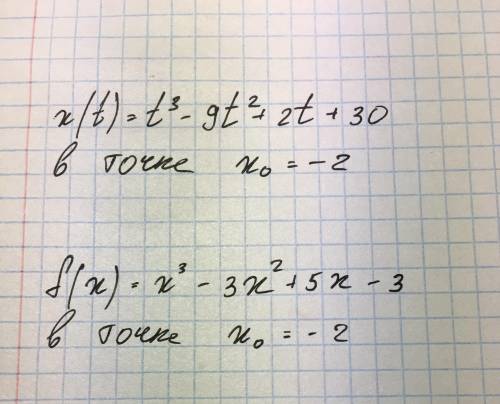 x(t) = t³ - 9t² + 2t + 30
в точке x₀ = -2
f(x) = x³ - 3x² + 5x - 3
в точке x₀ = -2